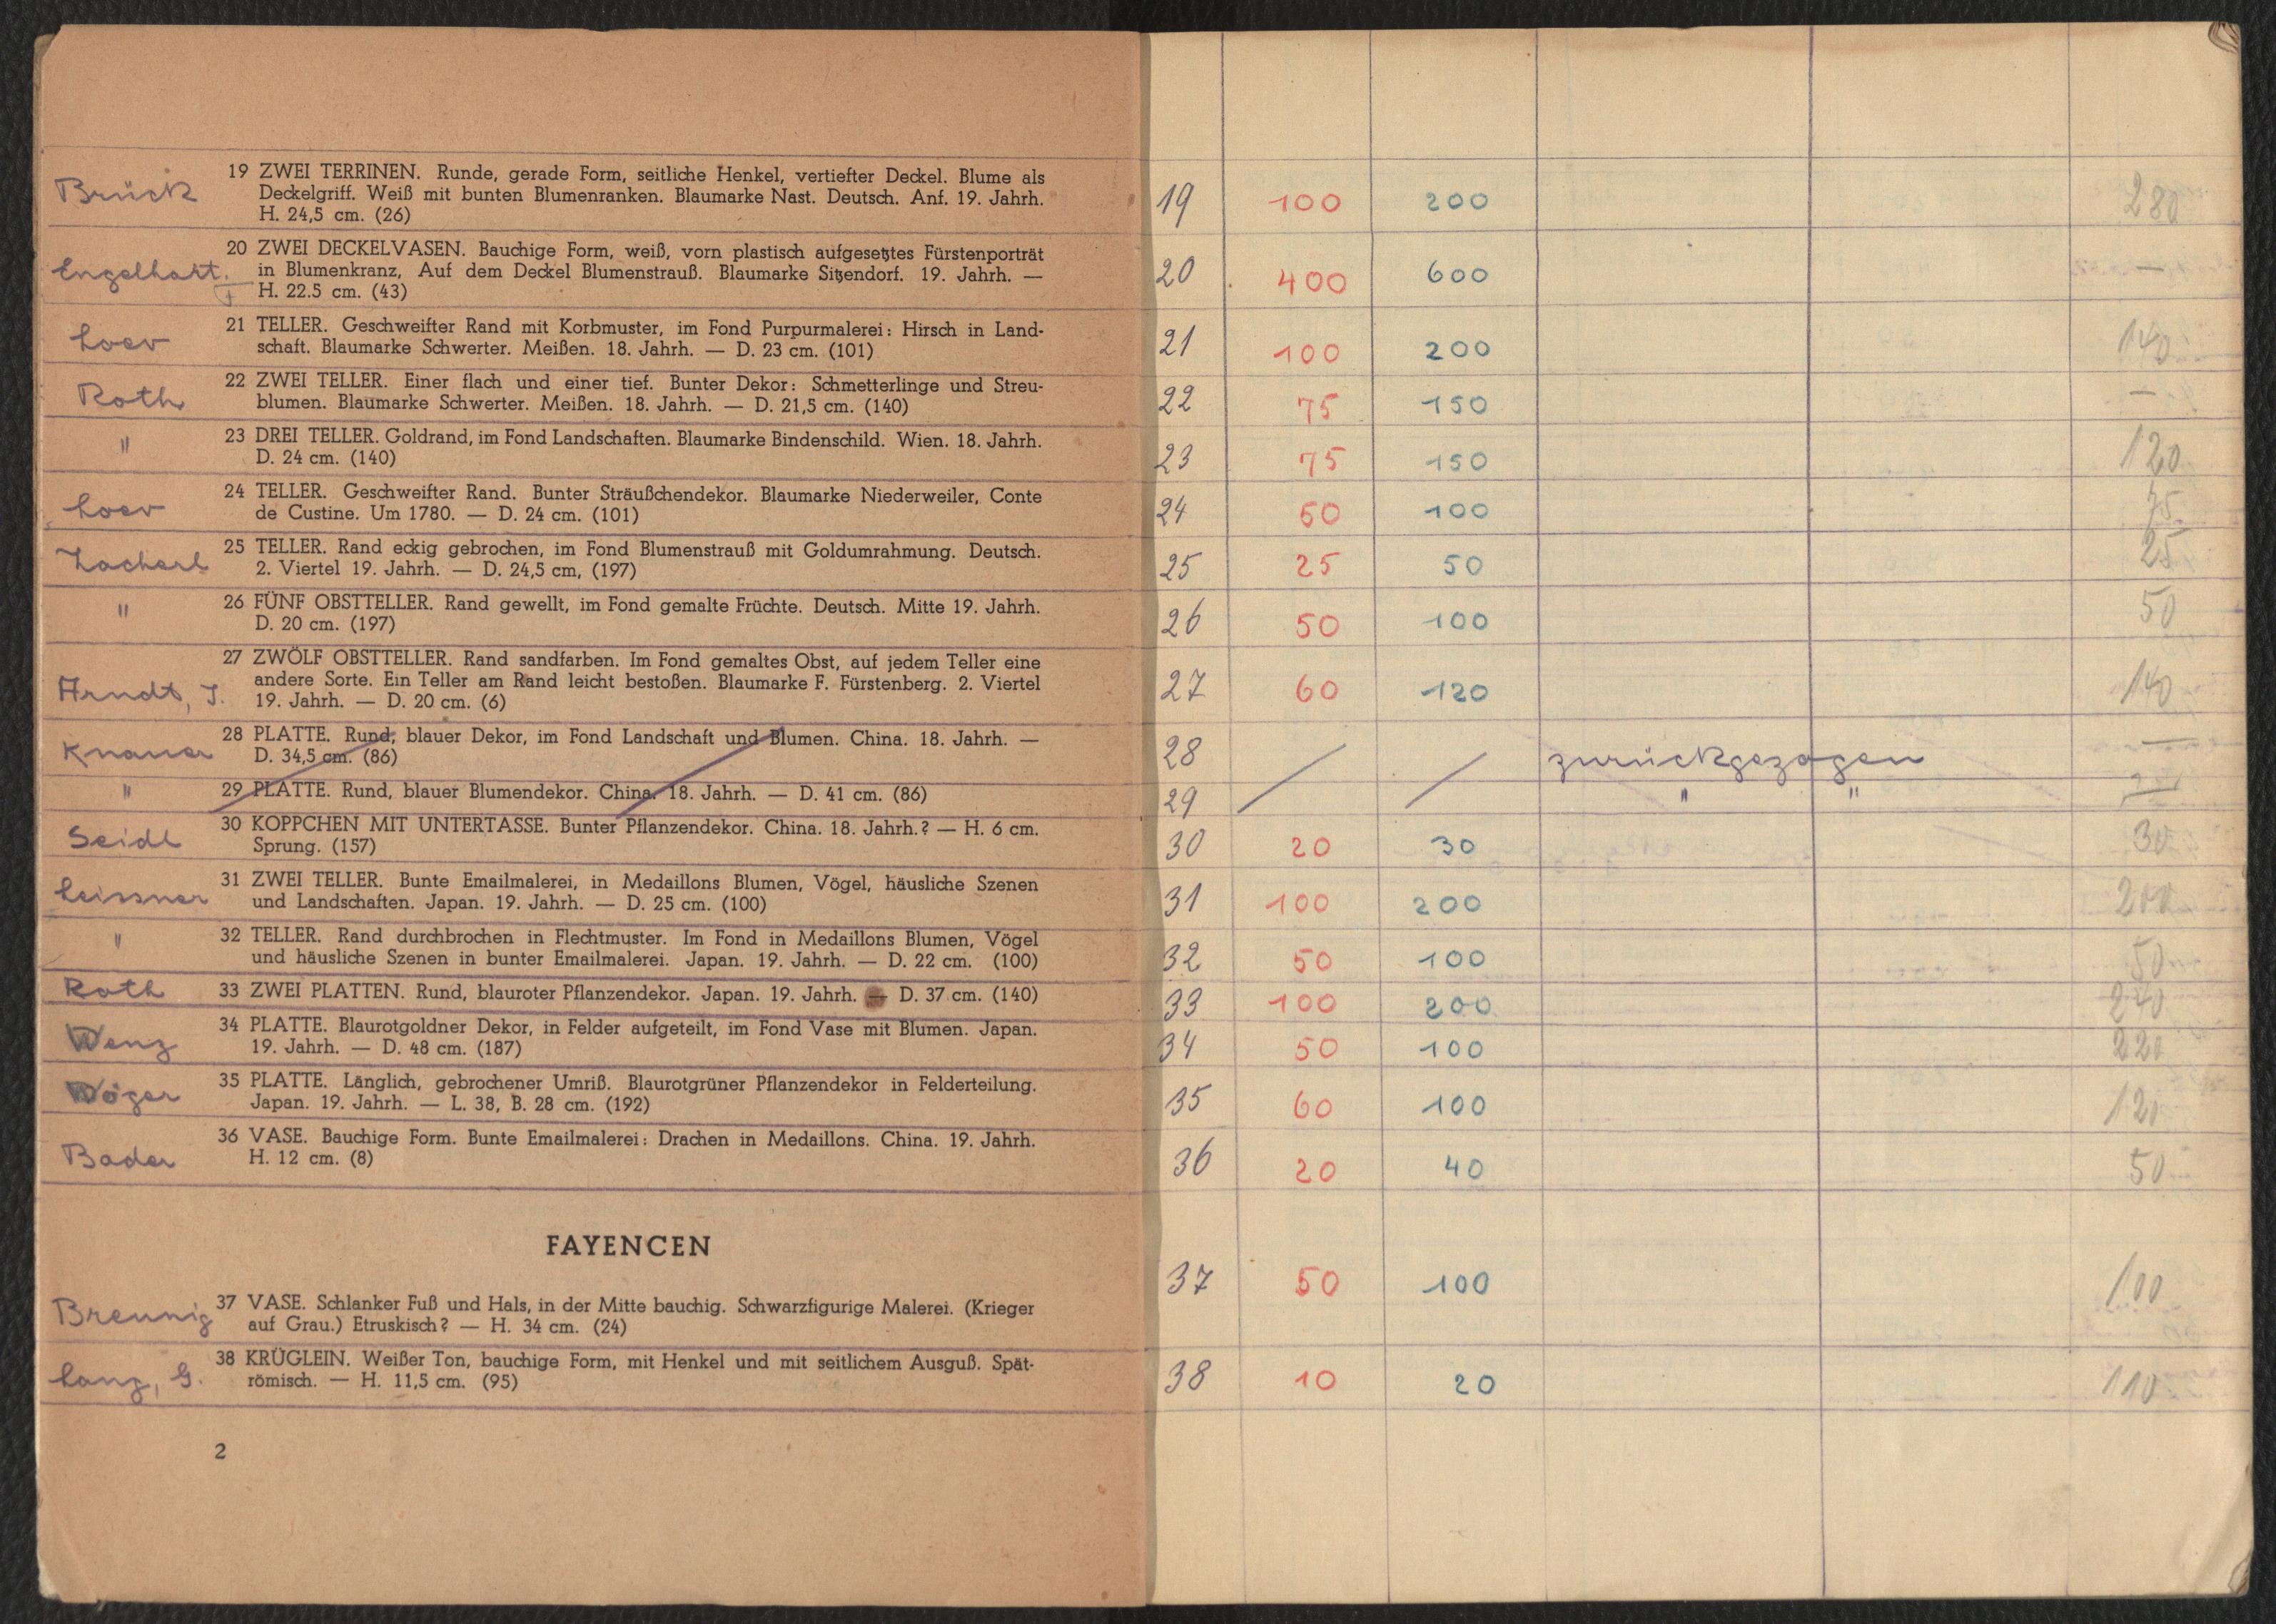 Brück
19 ZWEI TERRINEN. Runde, gerade Form, seitliche Henkel, vertiefter Deckel. Blume als
Deckelgriff. Weiß mit bunten Blumenranken. Blaumarke Nast. Deutsch. Anf. 19. Jahrh.
H. 24,5 cm. (26)
19 100 200 280
Engelhart.
20 ZWEI DECKELVASEN. Bauchige Form, weiß, vorn plastisch aufgesetztes Fürstenporträt
in Blumenkranz, Auf dem Deckel Blumenstrauß. Blaumarke Sitzendorf. 19. Jahrh. —
H. 22.5 cm. (43)
20 400 600 —
Loev
21 TELLER. Geschweifter Rand mit Korbmuster, im Fond Purpurmalerei: Hirsch in Land-
schaft. Blaumarke Schwerter. Meißen. 18. Jahrh. — D. 23 cm. (101)
21 100 200 140
Roth
22 ZWEI TELLER. Einer flach und einer tief. Bunter Dekor: Schmetterlinge und Streu-
blumen. Blaumarke Schwerter. Meißen. 18. Jahrh. — D. 21,5 cm. (140)
22 75 150 —
"
23 DREI TELLER. Goldrand, im Fond Landschaften. Blaumarke Bindenschild. Wien. 18. Jahrh.
D. 24 cm. (140)
23 75 150 120
Loev
24 TELLER. Geschweifter Rand. Bunter Sträußchendekor. Blaumarke Niederweiler, Conte
de Custine. Um 1780. — D. 24 cm. (101)
24 50 100 75
Zacherl
25 TELLER. Rand eckig gebrochen, im Fond Blumenstrauß mit Goldumrahmung. Deutsch.
2. Viertel 19. Jahrh. — D. 24,5 cm, (197)
25 25 50 25
"
26 FÜNF OBSTTELLER. Rand gewellt, im Fond gemalte Früchte. Deutsch. Mitte 19. Jahrh.
D. 20 cm. (197)
26 50 100 50
Arndt, J.
27 ZWÖLF OBSTTELLER. Rand sandfarben. Im Fond gemaltes Obst, auf jedem Teller eine
andere Sorte. Ein Teller am Rand leicht bestoßen. Blaumarke F. Fürstenberg. 2. Viertel
19. Jahrh. — D. 20 cm. (6)
27 60 120 140
Knauer
28 PLATTE. Rund, blauer Dekor, im Fond Landschaft und Blumen. China. 18. Jahrh. —
D. 34,5 cm. (86)
28 zurückgezogen —
"
29 PLATTE. Rund, blauer Blumendekor. China. 18. Jahrh. — D. 41 cm. (86)
29 " "
Seidl
30 KOPPCHEN MIT UNTERTASSE. Bunter Pflanzendekor. China. 18. Jahrh.? — H. 6 cm.
Sprung. (157)
30 20 30 30
Leissner
31 ZWEI TELLER. Bunte Emailmalerei, in Medaillons Blumen, Vögel, häusliche Szenen
und Landschaften. Japan. 19. Jahrh. — D. 25 cm. (100)
31 100 200 200
"
32 TELLER. Rand durchbrochen in Flechtmuster. Im Fond in Medaillons Blumen, Vögel
und häusliche Szenen in bunter Emailmalerei. Japan. 19. Jahrh. — D. 22 cm. (100)
32 50 100 50
Roth
33 ZWEI PLATTEN. Rund, blauroter Pflanzendekor. Japan. 19. Jahrh. — D. 37 cm. (140)
33 100 200 240
Wenz
34 PLATTE. Blaurotgoldner Dekor, in Felder aufgeteilt, im Fond Vase mit Blumen. Japan.
19. Jahrh. — D. 48 cm. (187)
34 50 100 220
Wöger
35 PLATTE. Länglich, gebrochener Umriß. Blaurotgrüner Pflanzendekor in Felderteilung.
Japan. 19. Jahrh. — L. 38, B. 28 cm. (192)
35 60 100 120
Bader
36 VASE. Bauchige Form. Bunte Emailmalerei: Drachen in Medaillons. China. 19. Jahrh.
H. 12 cm. (8)
36 20 40 50
FAYENCEN
Breunig
37 VASE. Schlanker Fuß und Hals, in der Mitte bauchig. Schwarzfigurige Malerei. (Krieger
auf Grau.) Etruskisch? — H. 34 cm. (24)
37 50 100 100
Lang, G.
38 KRÜGLEIN. Weißer Ton, bauchige Form, mit Henkel und mit seitlichem Ausguß. Spät-
römisch. — H. 11,5 cm. (95)
38 10 20 110
2